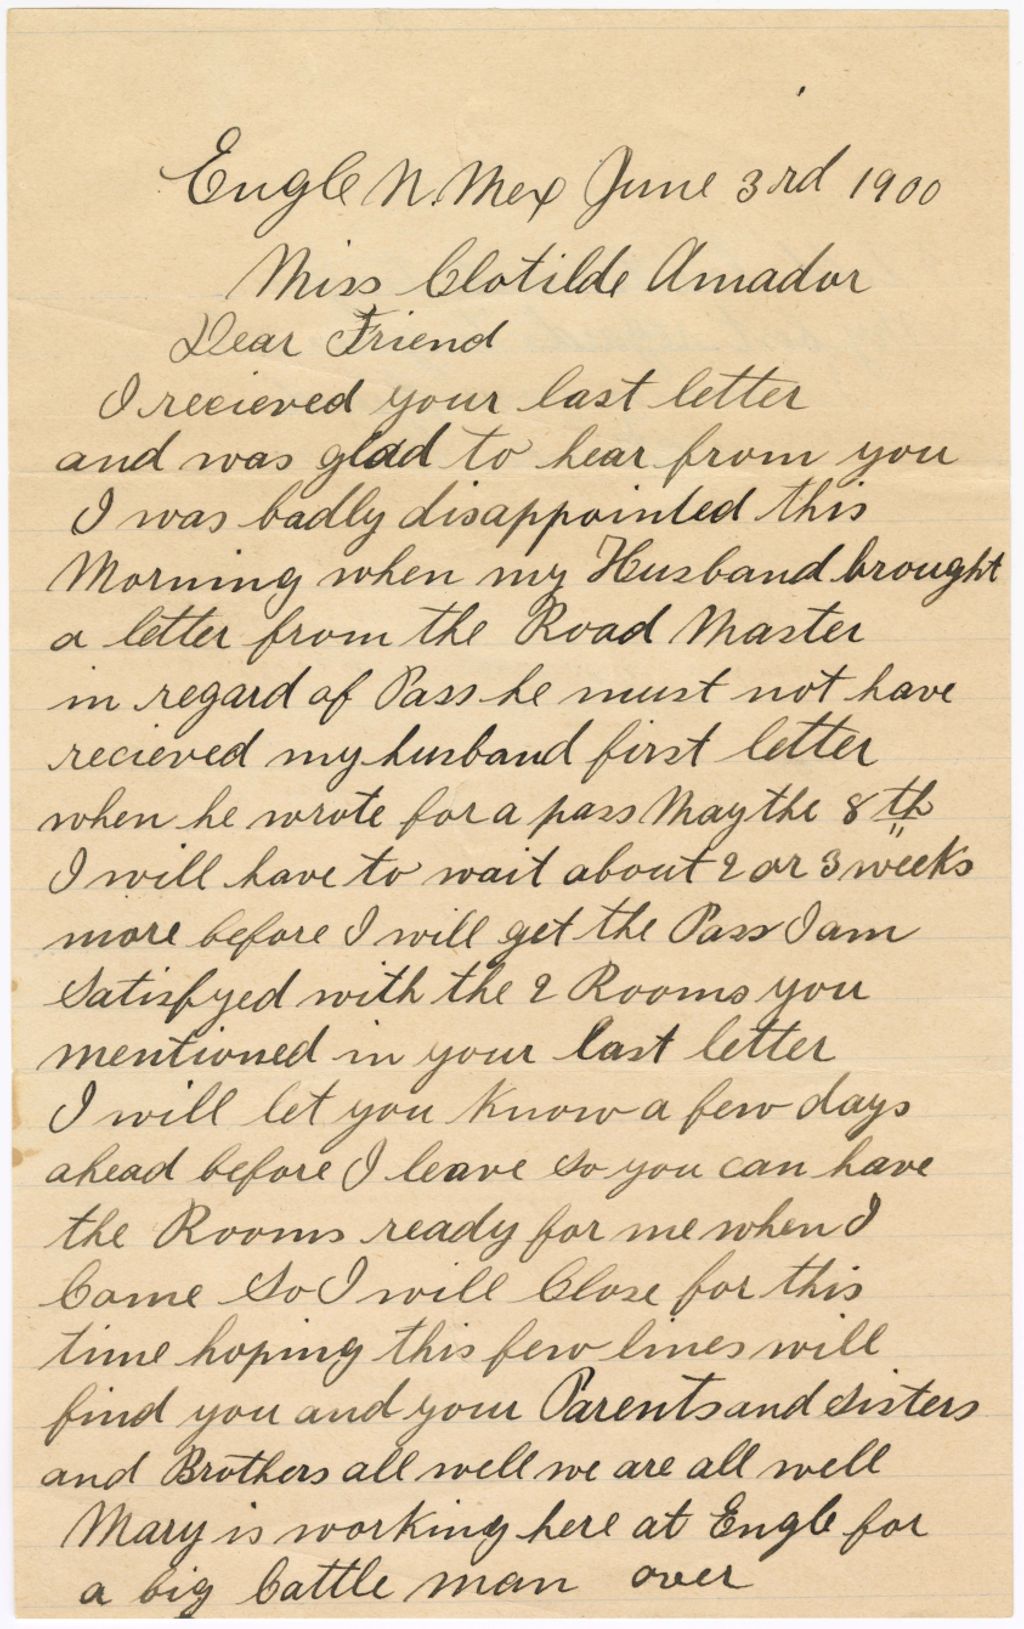 Engle N. Mex June 3rd 1900
Miss Clotilde Amador
Dear Friend
I recieved your last letter
and was glad to hear from you
I was badly disappointed this
Morning when my Husband brought
a letter from the Road Master
in regard of Pass he must not have
recieved my husband first letter
when he wrote for a pass May the 8th
I will have to wait about 2 or 3 weeks
more before I will get the Pass I am
Satisfyed with the 2 Rooms you
mentioned in your last letter
I will let you know a few days
ahead before I leave so you can have
the Rooms ready for me when I
Come So I will Close for this
time hoping this few lines will
find you and your Parents and sisters
and Brothers all well we are all well
Mary is working here at Engle for
a big Cattle man over